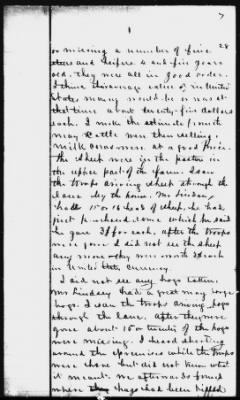 7
1
28
or missing a number of fine
steers and heifers 4 and five years
old. They were all in good order.
I think the average value of in United
States money would be or was at
that time about twenty-five dollars
each. I make the estimate from what
may cattle were then selling.
Milk cows were at a good price.
The sheep were in the pasture in
the upper part of the farm. I saw
the troops driving sheep through the
lane by the house. Mr Lindsey
had 15 or 16 head of sheep, he had
just purchased some which he said
he gave $8 for each. After the troops
were gone I did not see the sheep
any more. They were worth $ each
in United States currency.
I did not see any hogs taken.
Mr Lindsey had a great many large
hogs. I saw the troops among hogs
through the lane. After they were
gone about 15 or twenty of the hogs
were missing. I heard shooting
around the premises while the troops
were there but did not know what
it meant. We afterwards found
where hogs had been killed